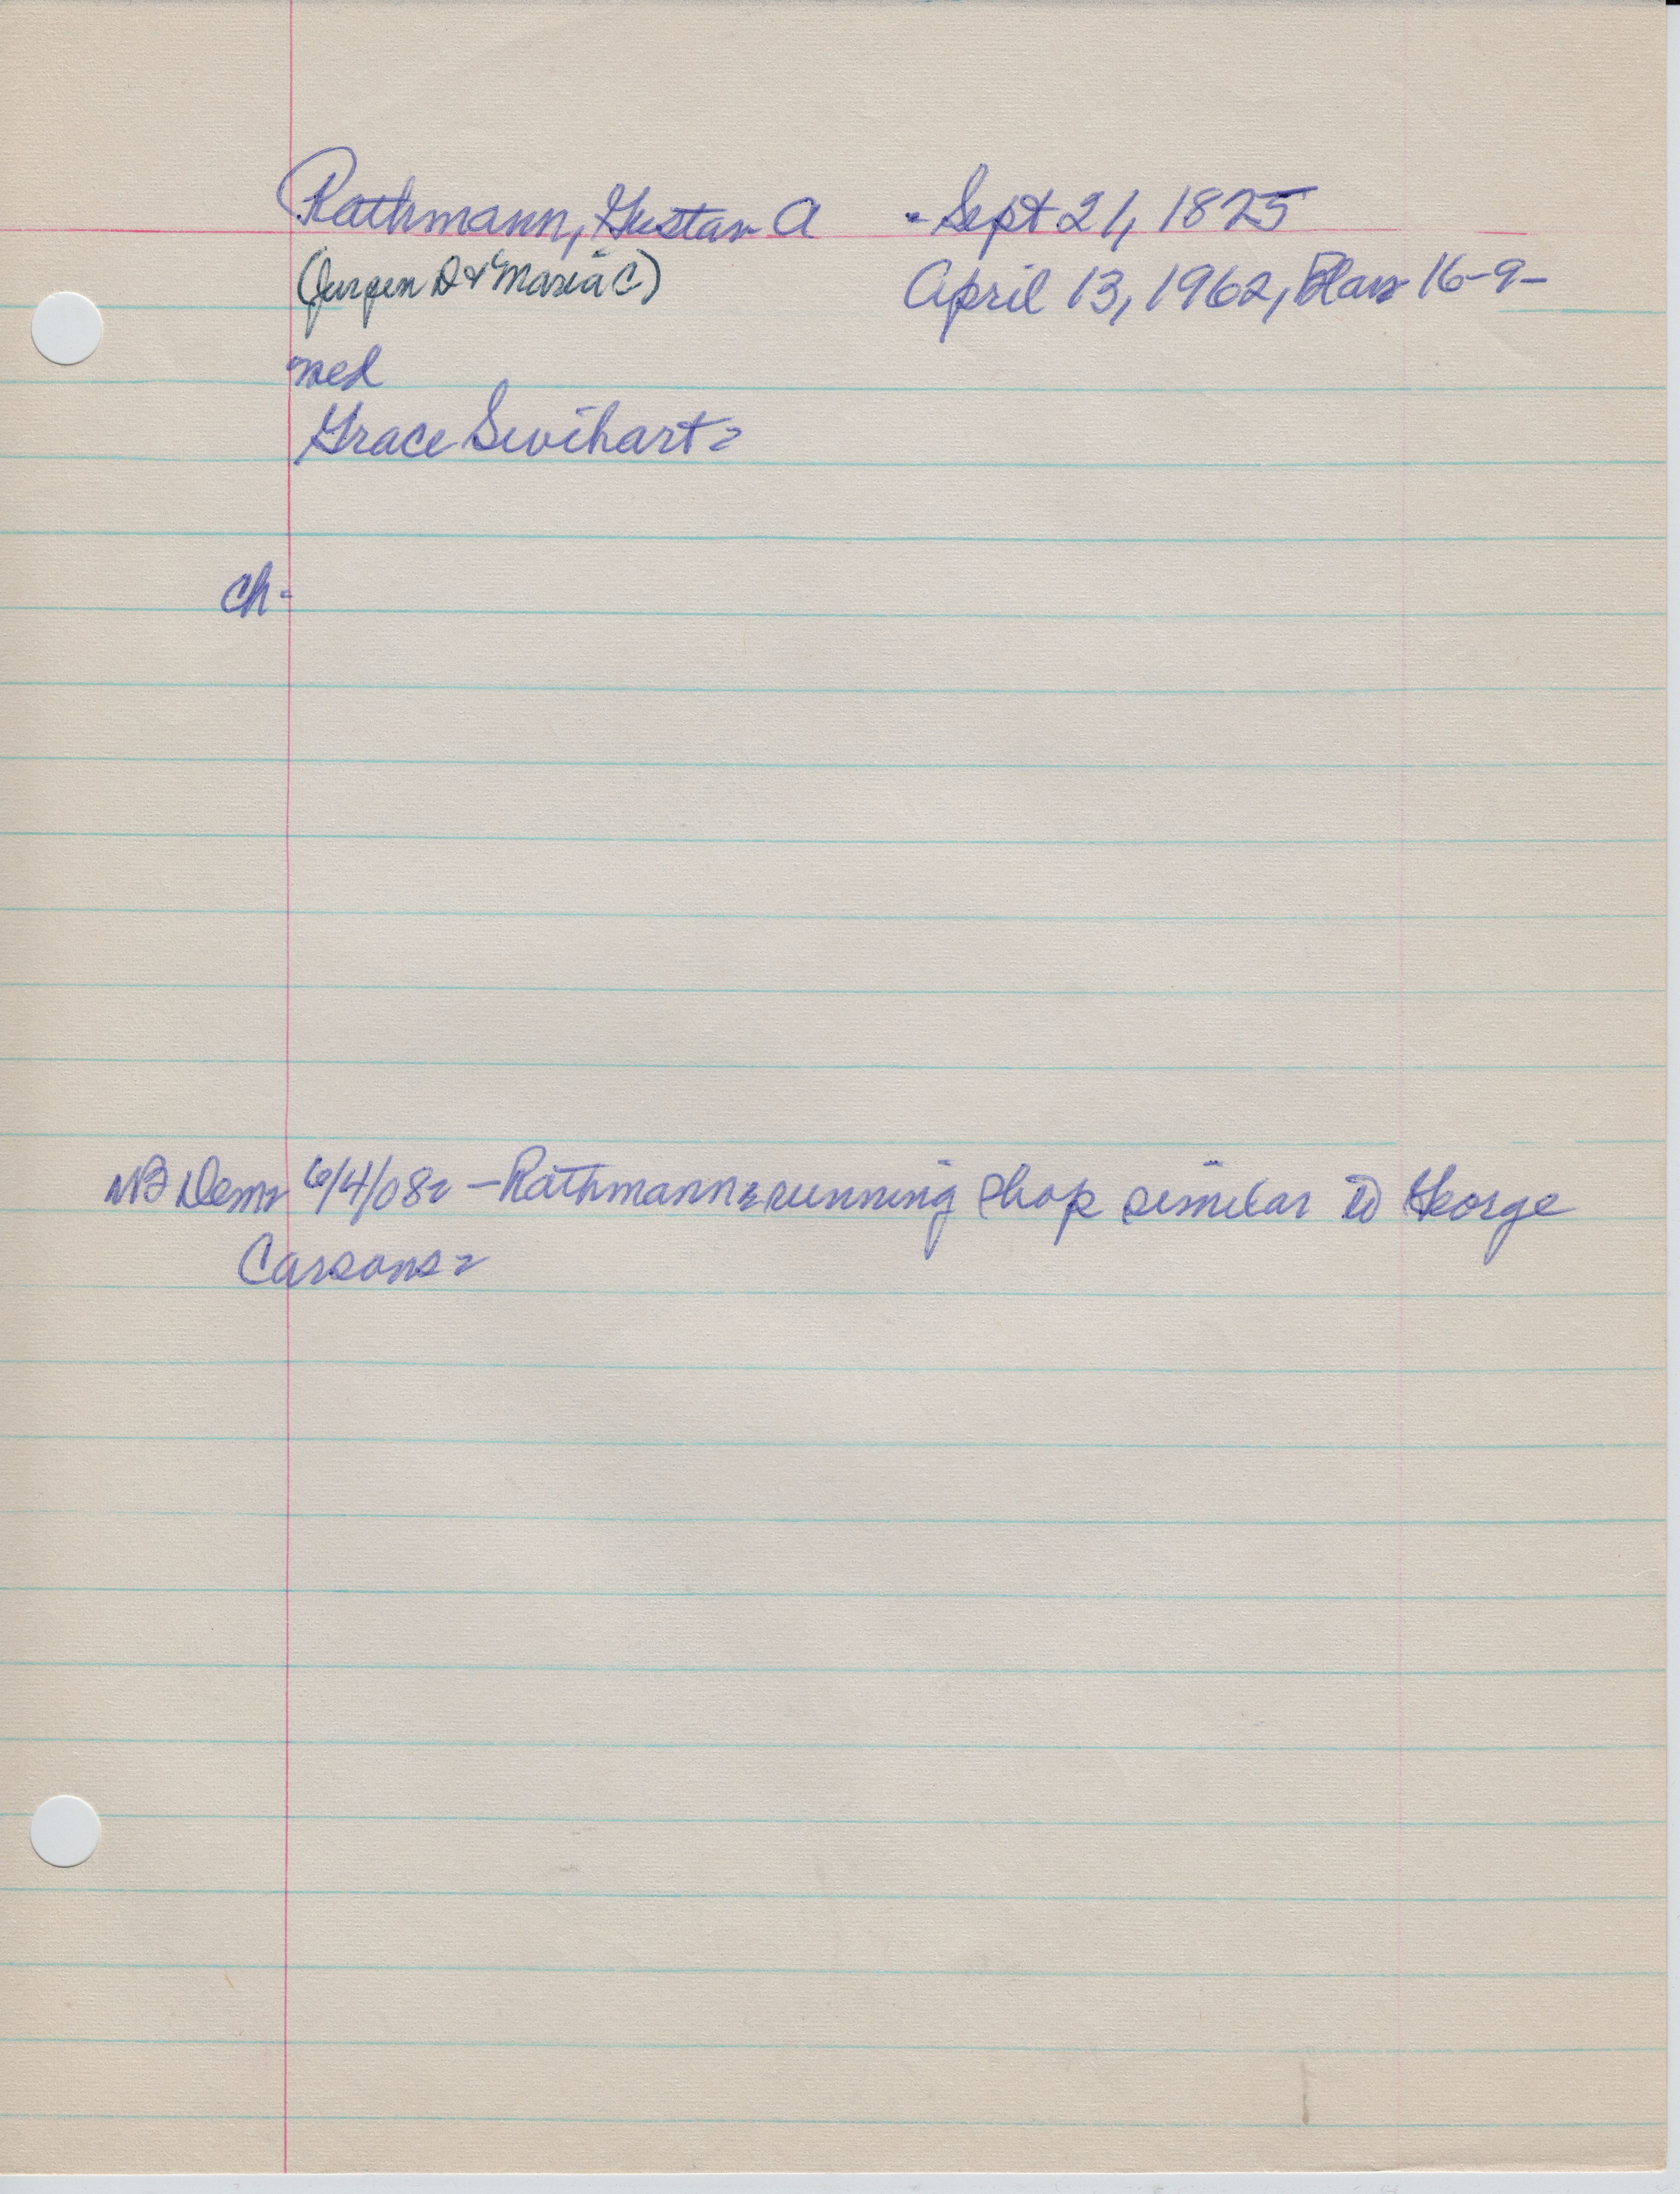 Rathmann, Gustav A - Sept 21, 1825
(Jurgen D & Maria C) April 13, 1962, Blair 16-9-
med
Grace Swihart-
ch-
NB Dem- 6/4/08- - Rathmann running shop similar to George
Carsons-